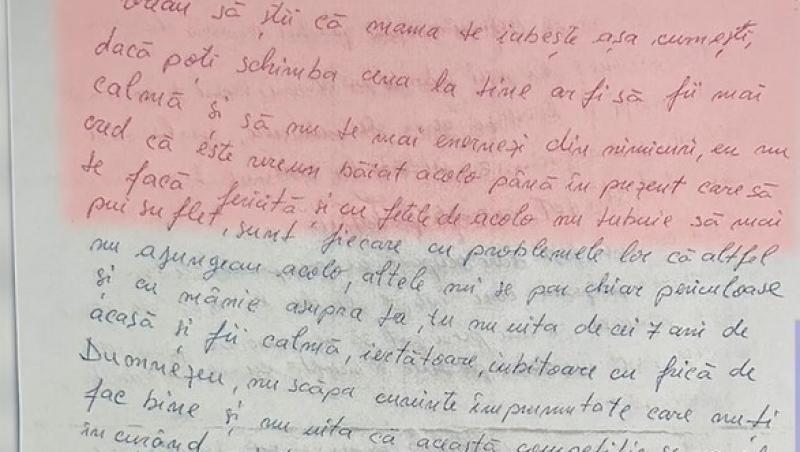 Vreau să știi că mama te iubește așa cum ești,
dacă poți schimba ceva la tine ar fi să fii mai
calmă și să nu te mai enervezi din nimicuri, eu nu
cred că este vreun băiat acolo până în prezent care să
te facă fericită și cu fetele de acolo nu trebuie să mai
pui suflet, sunt fiecare cu problemele lor că altfel
nu ajungeau acolo, altele mi se par chiar periculoase
și cu mânie asupra ta, tu nu uita de cei 7 ani de
acasă și fii calmă, iertătoare, iubitoare cu frică de
Dumnezeu, nu scăpa cuvinte împrumutate care nu-ți
fac bine și nu uita că această competiție se
în curând